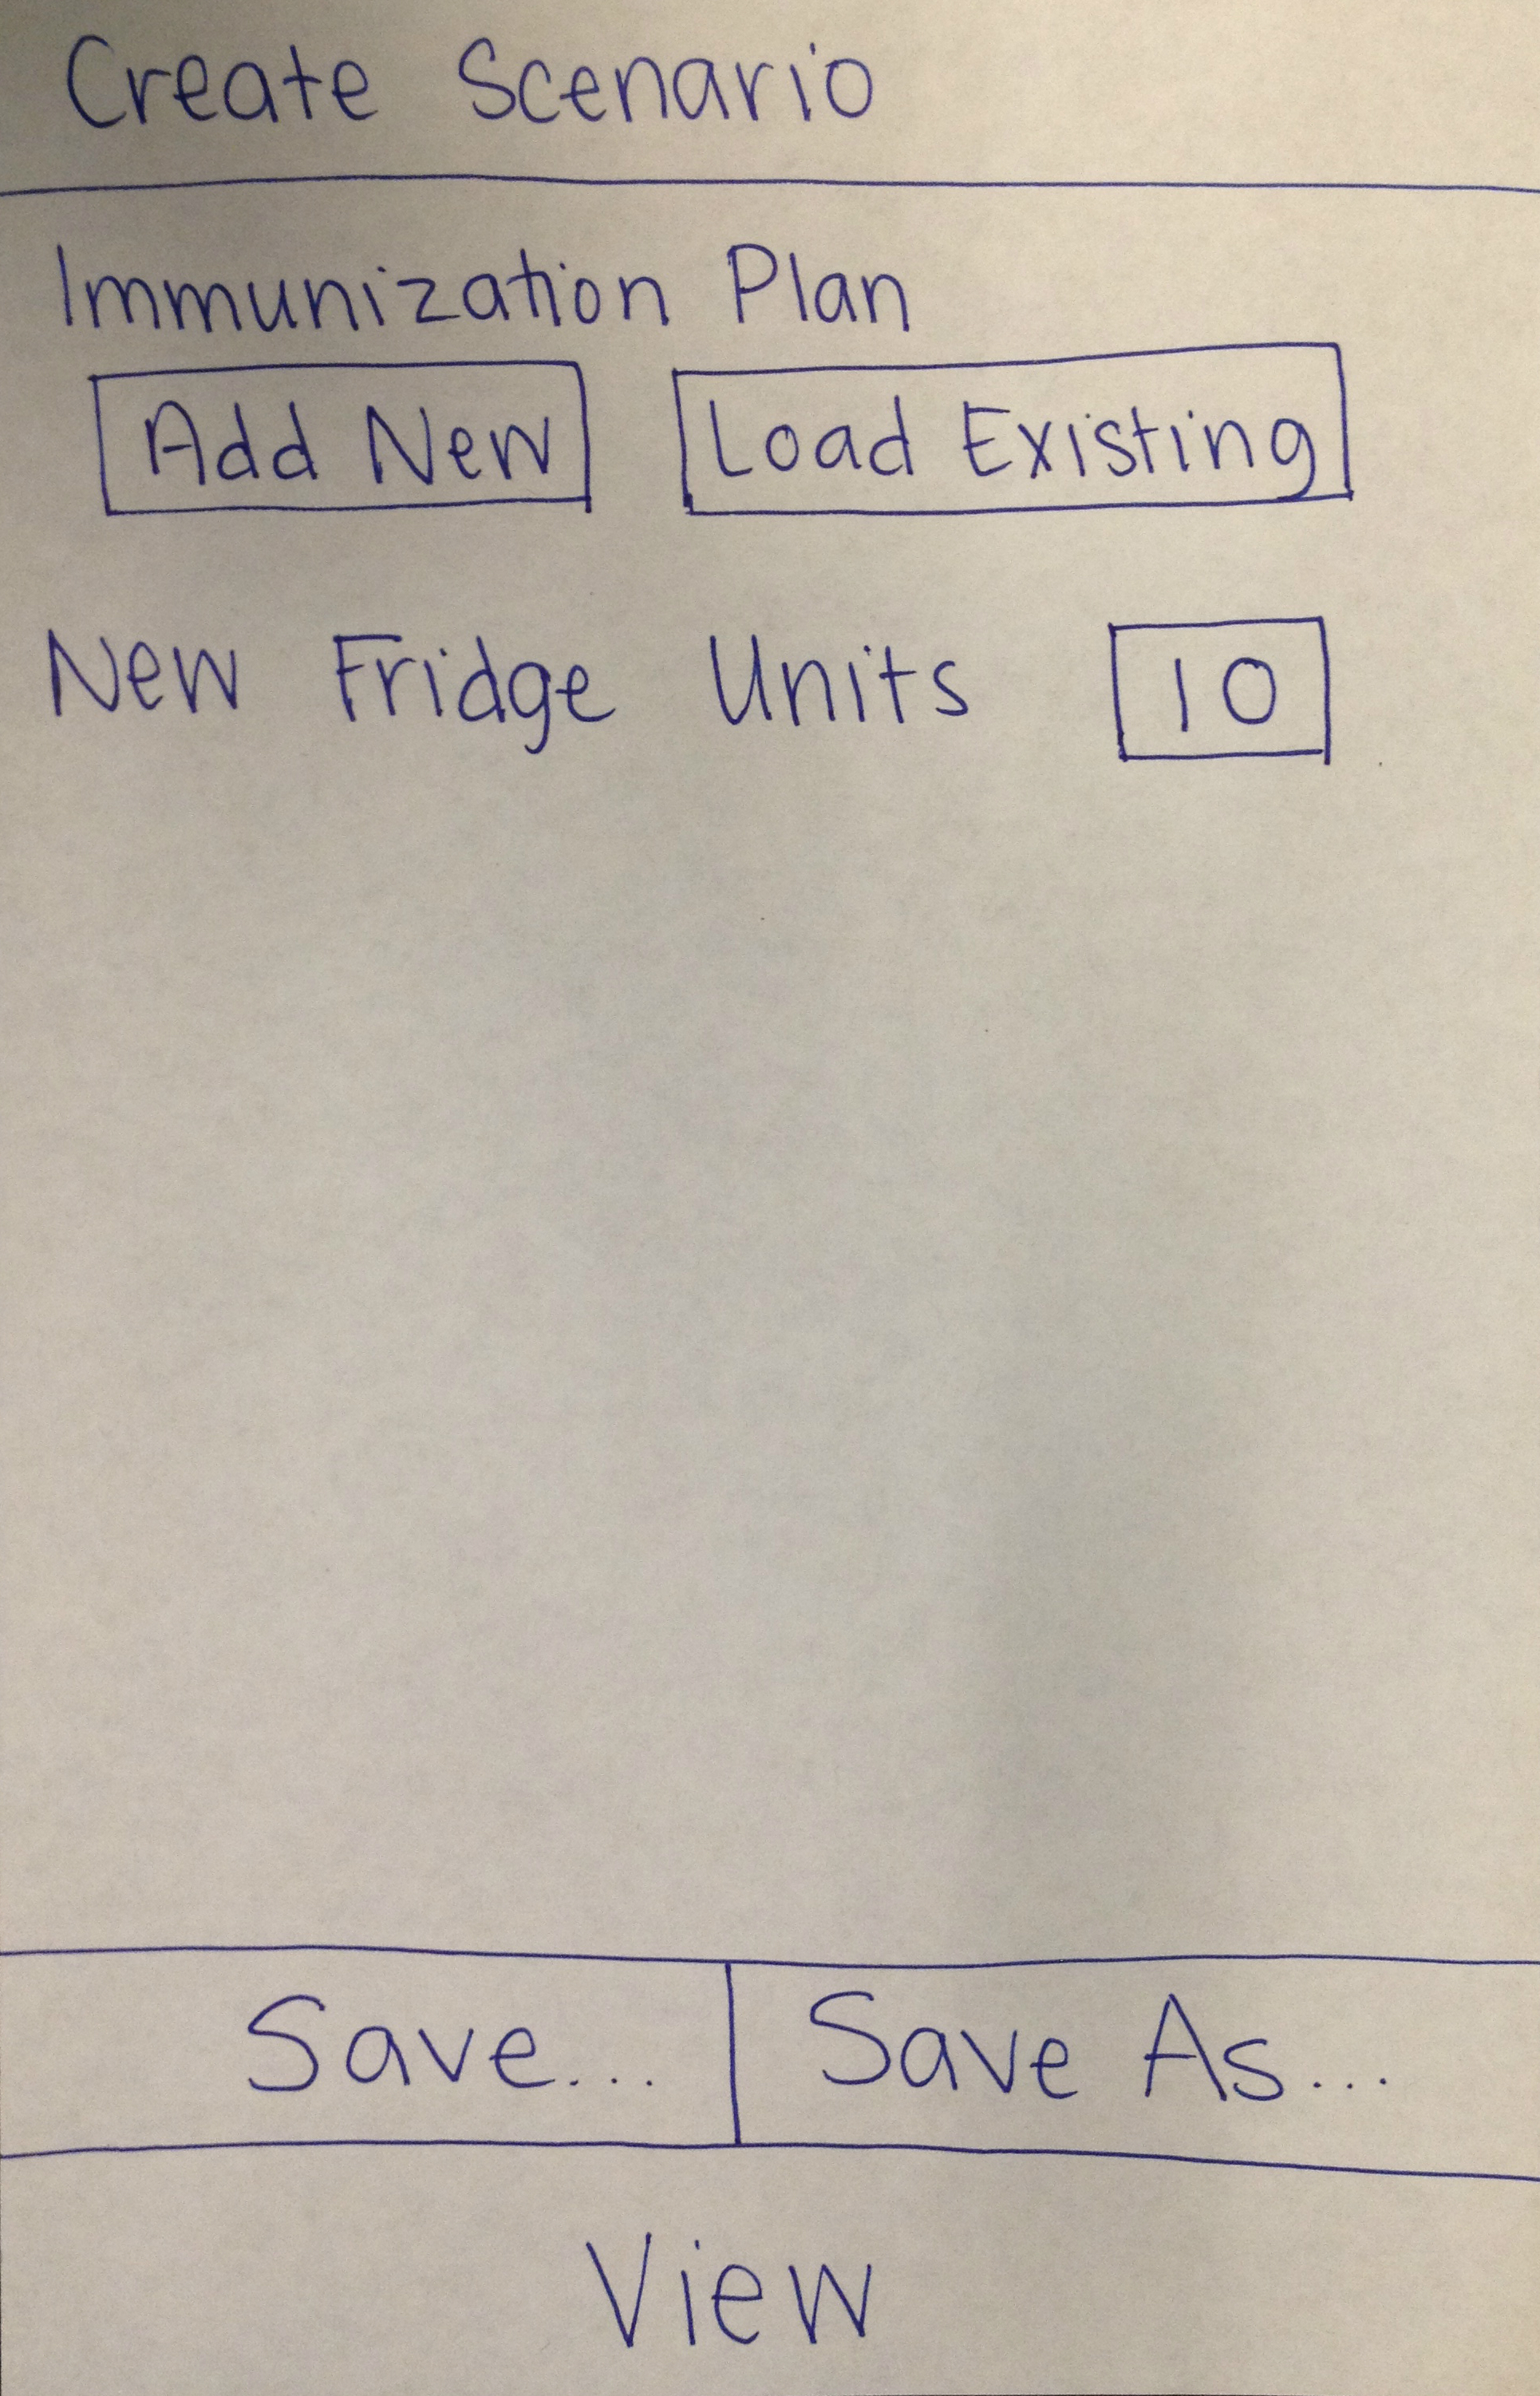 Create Scenario
Immunization Plan
Add New Load Existing
New Fridge Units 10
Save... Save As...
View